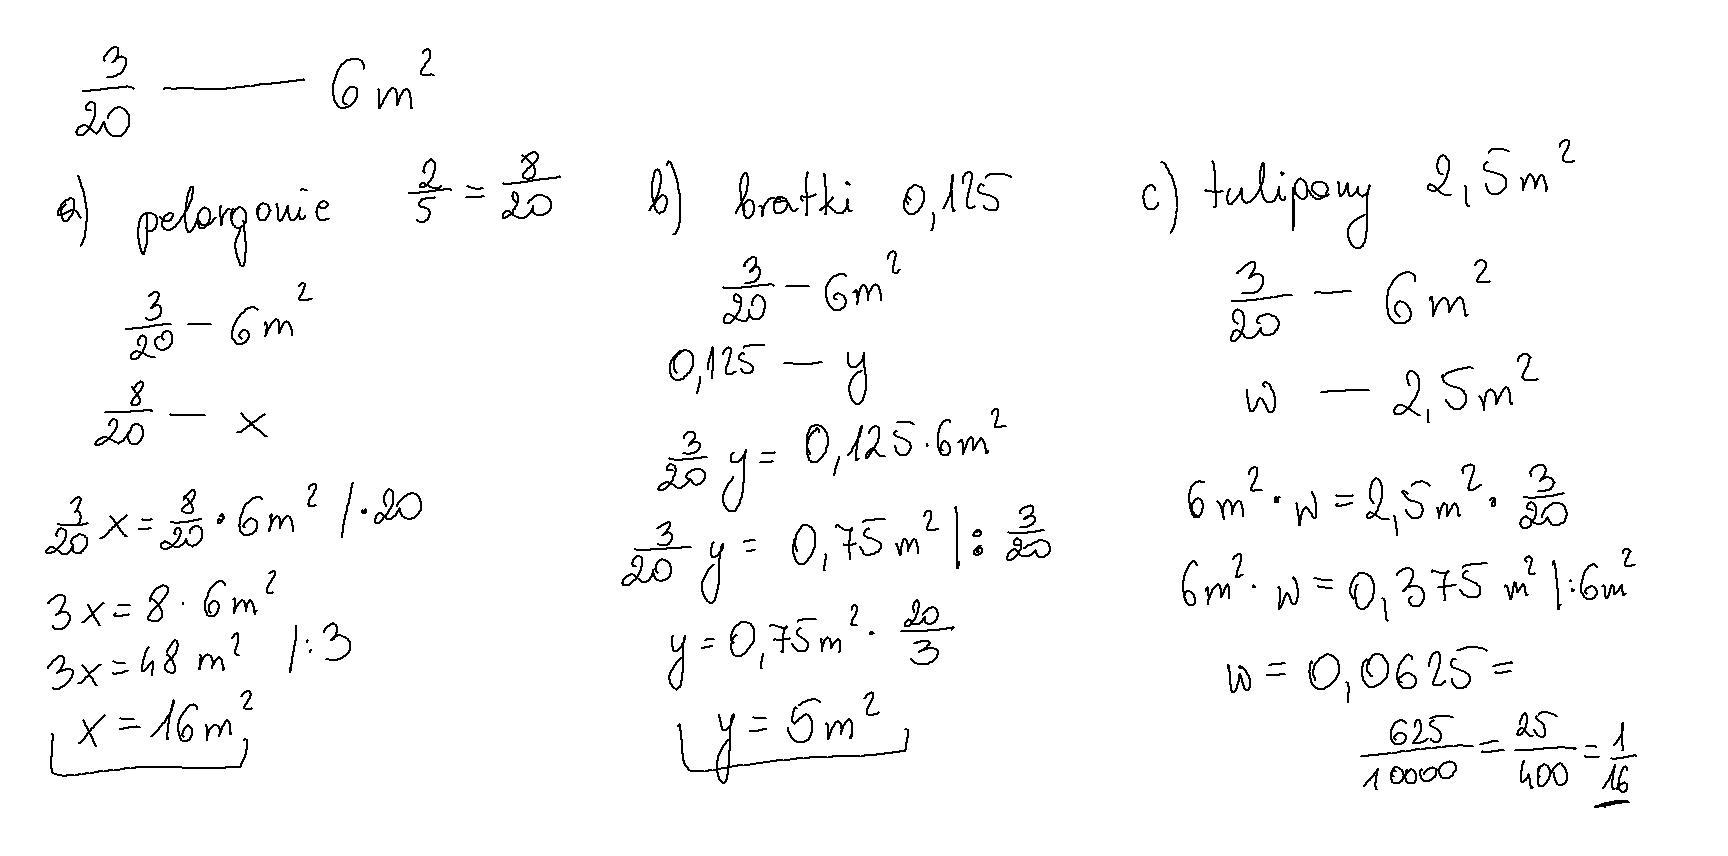 3/20 — 6m²
a) pelargonie 2/5 = 8/20
3/20 – 6m²
8/20 – x
3/20 x = 8/20 · 6m² /·20
3x = 8 · 6m²
3x = 48 m² /:3
x = 16m²
b) bratki 0,125
3/20 – 6m²
0,125 – y
3/20 y = 0,125·6m²
3/20 y = 0,75m² |: 3/20
y = 0,75m² · 20/3
y = 5m²
c) tulipany 2,5m²
3/20 – 6m²
w – 2,5m²
6m² · w = 2,5m² · 3/20
6m² · w = 0,375 m² |:6m²
w = 0,0625 =
625/10000 = 25/400 = 1/16